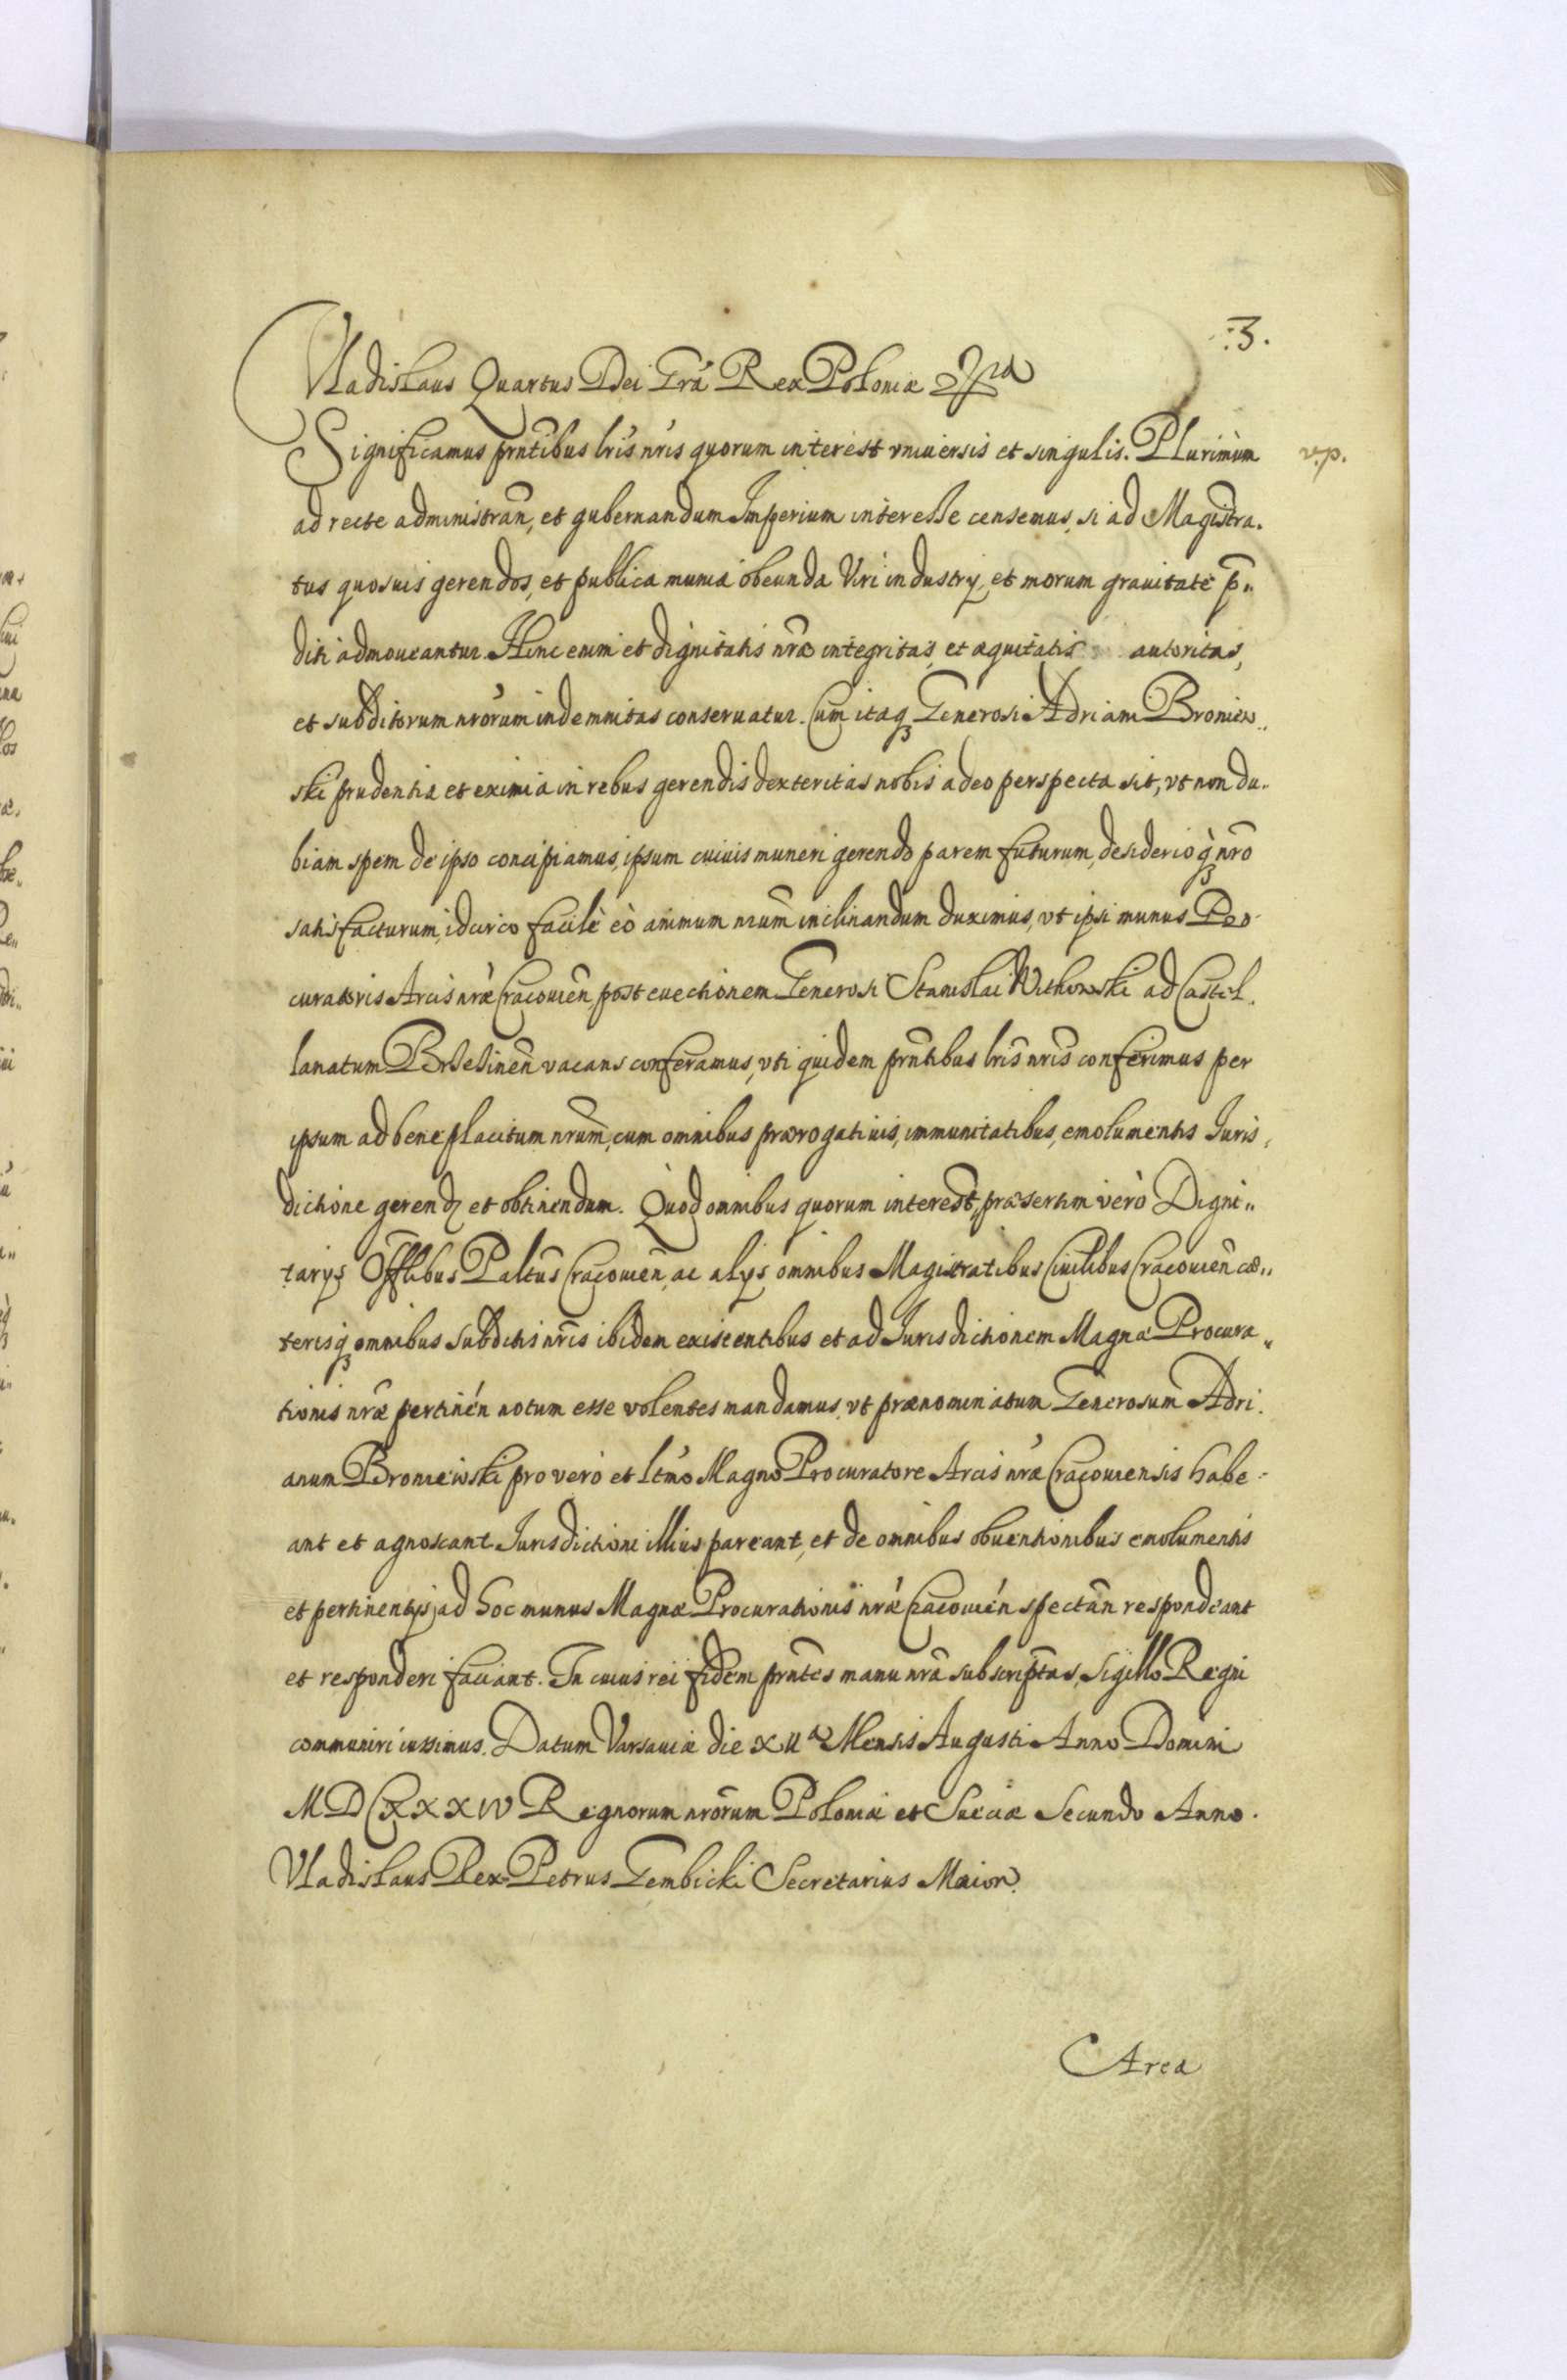 :3.
Vladislaus Quartus Dei Grã Rex Poloniæ
Significamus prñtibus lrĩs nrĩs quorum interest vniuersis et singulis. Plurimùm
v.p.
ad recte administrañ, et gubernandum Imperium interesse censemus, si ad Magistra.
tus quosuis gerendos, et publica munia obeunda Viri industrÿ, et morum grauitate p̃„
diti admoueantur. Hinc enim et dignitatis nræ integritas, et æquitatis autoritas,
et subditorum nrõrum indemnitas conseruatur. Cum itaqꝫ Generosi Adriani Broniew„
ski prudentia et eximia in rebus gerendis dexteritas nobis adeo perspecta sit, vt non du„
biam spem de ipso concipiamus, ipsum cuiuis muneri gerendo parem futurum, desiderioqꝫ nrõ
satisfacturum, idcirco facilè eò animum nrũm inclinandum duximus, vt ipsi munus Pro„
curatoris Arcis nræ Cracouieñ, post euectionem Generosi Stanislai Withowski ad Castel„
lanatum Brzezineñ vacans conferamus, vti quidem prñtibus lrĩs nrĩs conferimus per
ipsum ad beneplacitum nrũm, cum omnibus prærogatiuis, immunitatibus, emolumentis Juris„
dictione gerend et obtinendum. Quod omnibus quorum interest, præsertim verò Digni„
tarÿs Offlibus Paltũs Cracouieñ, ac alÿs omnibus Magistratibus Ciuilibus Cracouieñ cæ„
terisqꝫ omnibus Subditis nrĩs ibidem existentibus et ad Jurisdictionem Magnæ Procura„
tionis nræ pertineñ notum esse volentes mandamus, vt prænominatum Generosum Adri„
anum Broniewski pro vero et ltmõ Magno Procuratore Arcis nræ Cracouiensis habe„
ant et agnoscant Jurisdictioni illius pareant, et de omnibus obuentionibus emolumentis
et pertinentÿs, ad hoc munus Magnæ Procurationis nræ Cracouieñ spectañ respondeant
et responderi faciant. In cuius rei fidem prñtes manu nrã subscriptas, Sigillo Regni
communiri iussimus. Datum Varsauiæ die XIIa Mensis Augusti Anno Domini
MDCXXXIV Regnorum nrõrum Poloniæ et Sueciæ Secundo Anno.
Vladislaus Rex Petrus Gembicki Secretarius Maior.
Area